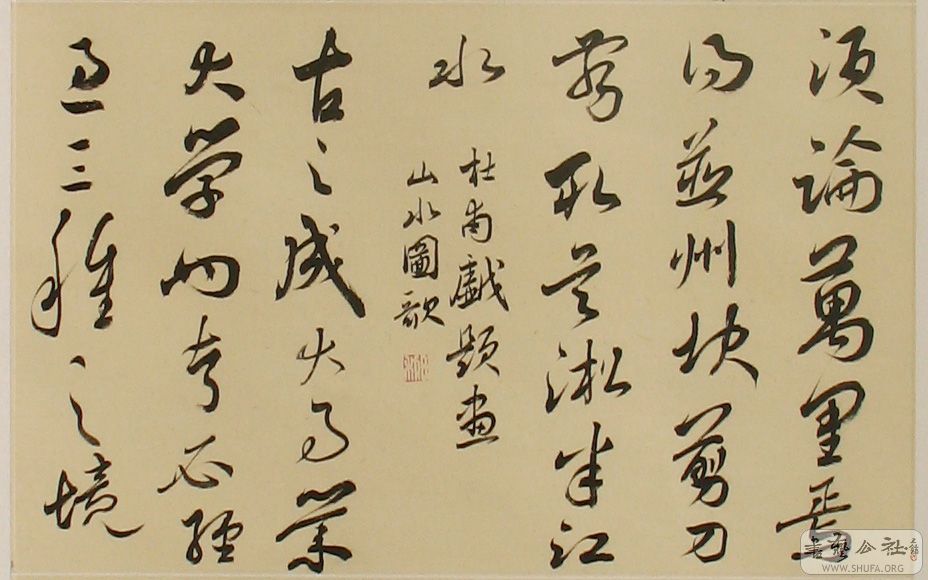 須論萬里焉
得並州快剪刀
剪取吳淞半江
水
杜甫戲題畫
山水圖歌
古之成大事業
大学問者必經
過三種之境
書藝公社
WWW.SHUFA.ORG